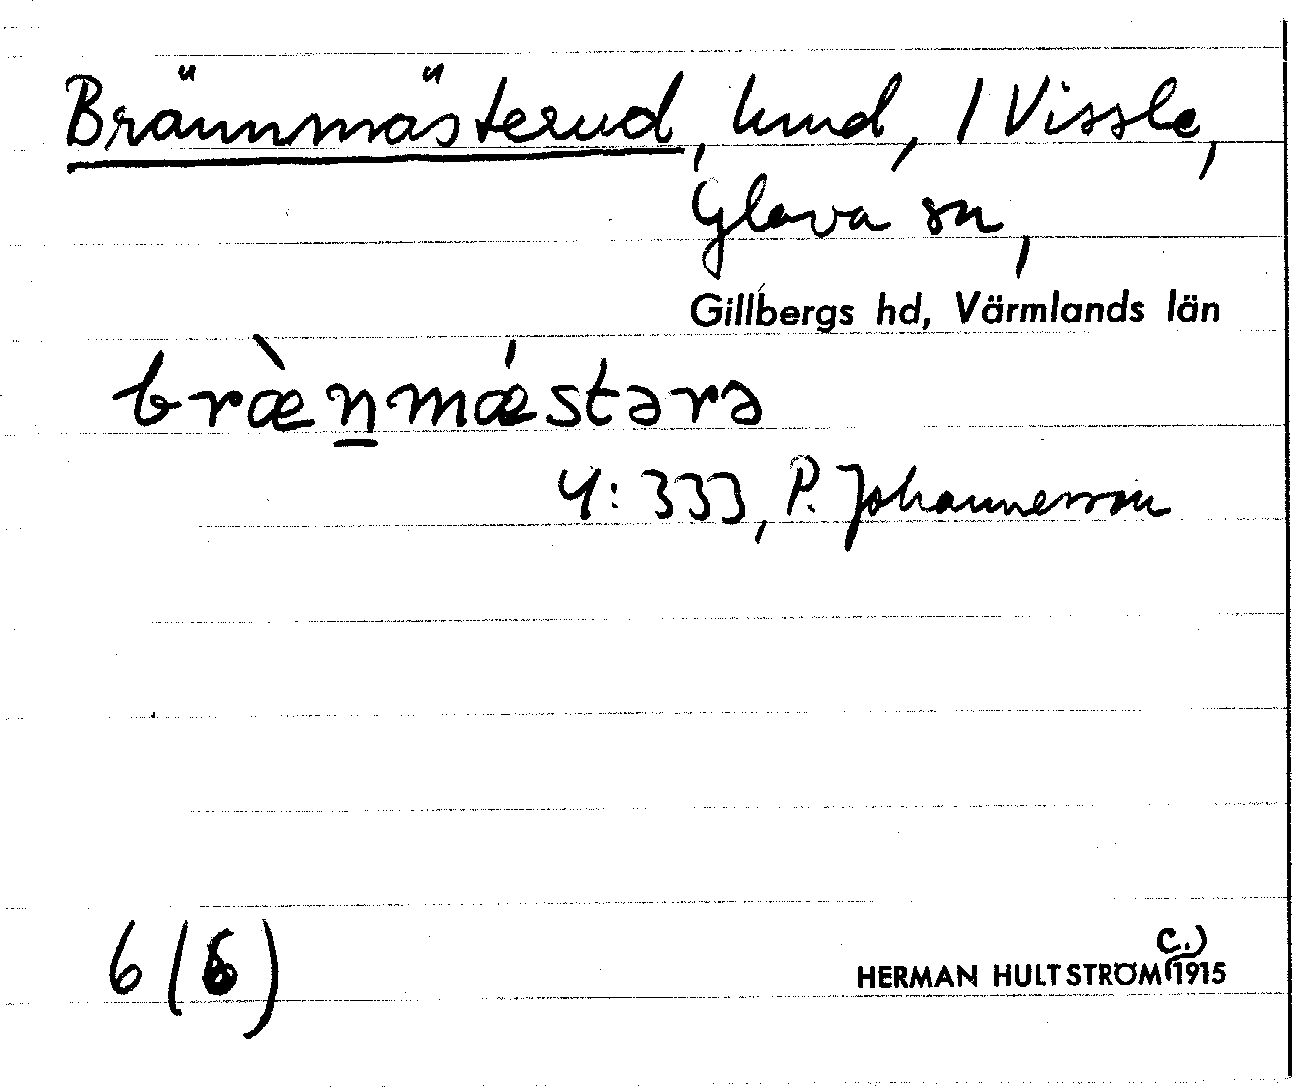 Brännmästerud, hmd, 1 Vissle,
Glava sn,
Gillbergs hd, Värmlands län
bræ̀n̲mǽstərə
4:333, P. Johannesson
6 (6)
HERMAN HULTSTRÖM (c.) 1915